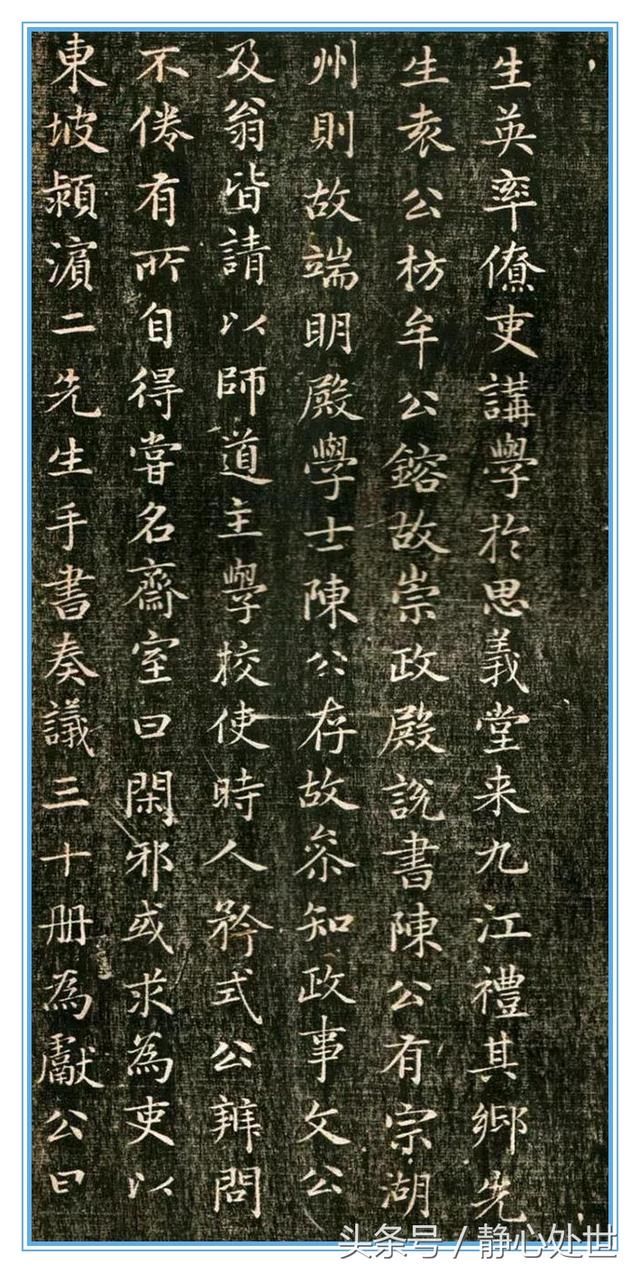 生英率僚吏講學於思義堂来九江禮其鄉先
生袁公枋牟公鎔故崇政殿說書陳公有宗湖
州則故端明殿學士陳公存故叅知政事文公
及翁皆請以師道主學校使時人矜式公辨問
不倦有所自得甞名齋室曰閑邪或求為吏以
東坡頴濵二先生手書奏議三十册為獻公曰
头条号 / 静心处世